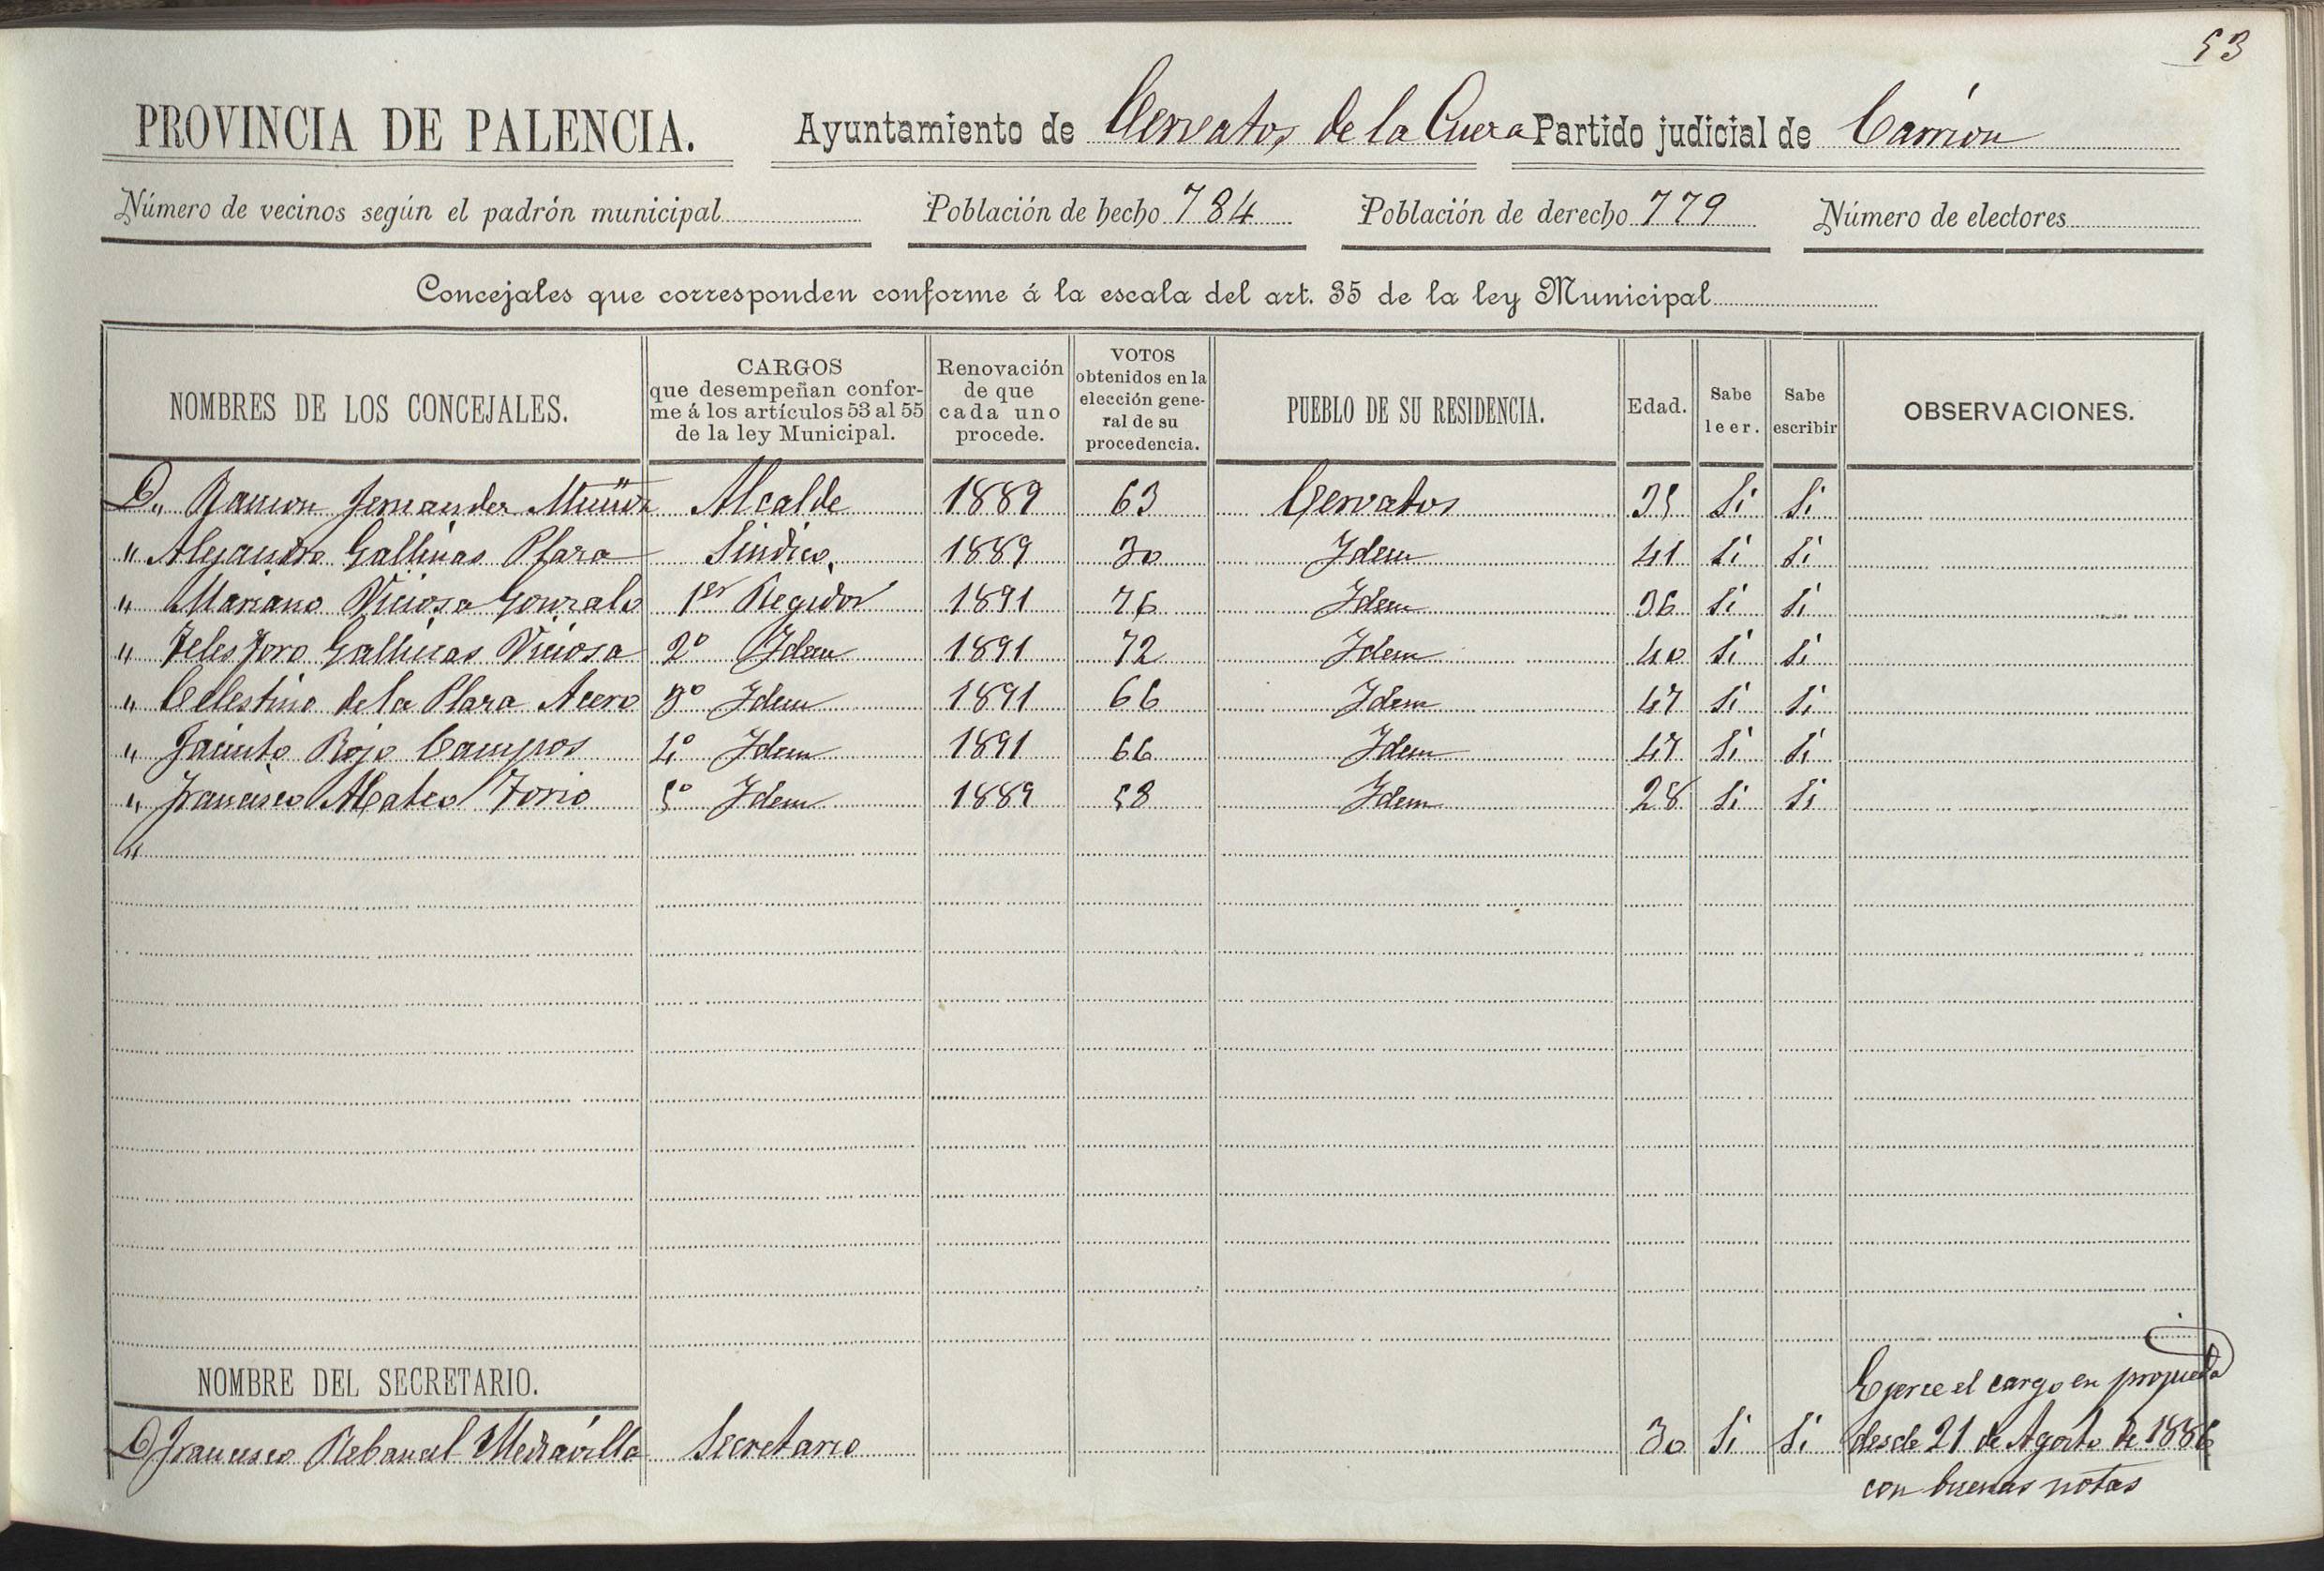 53
PROVINCIA DE PALENCIA. Ayuntamiento de Cervatos de la Cueza Partido judicial de Carrión
Número de vecinos según el padrón municipal Población de hecho 784 Población de derecho 779 Número de electores
Concejales que corresponden conforme á la escala del art. 35 de la ley Municipal
NOMBRES DE LOS CONCEJALES. CARGOS que desempeñan conforme á los artículos 53 al 55 de la ley Municipal. Renovación de que cada uno procede. VOTOS obtenidos en la elección general de su procedencia. PUEBLO DE SU RESIDENCIA. Edad. Sabe leer. Sabe escribir OBSERVACIONES.
D. Ramon Fernandez Muñoz Alcalde 1889 63 Cervatos 35 Si Si
" Alejandro Gallinas Plaza Sindico 1889 30 Idem 41 Si Si
" Mariano Viciosa Gonzalo 1er Regidor 1891 76 Idem 36 Si Si
" Telesforo Gallinas Viciosa 2º Idem 1891 72 Idem 40 Si Si
" Celestino de la Plaza Acero 3º Idem 1891 66 Idem 47 Si Si
" Jacinto Rojo Campos 4º Idem 1891 66 Idem 47 Si Si
" Francisco Mateo Torio 5º Idem 1889 58 Idem 28 Si Si
"
NOMBRE DEL SECRETARIO.
D Francisco Rebanal Mediavilla Secretario 30 Si Si Ejerce el cargo en propieda
desde 21 de Agosto de 1886
con buenas notas